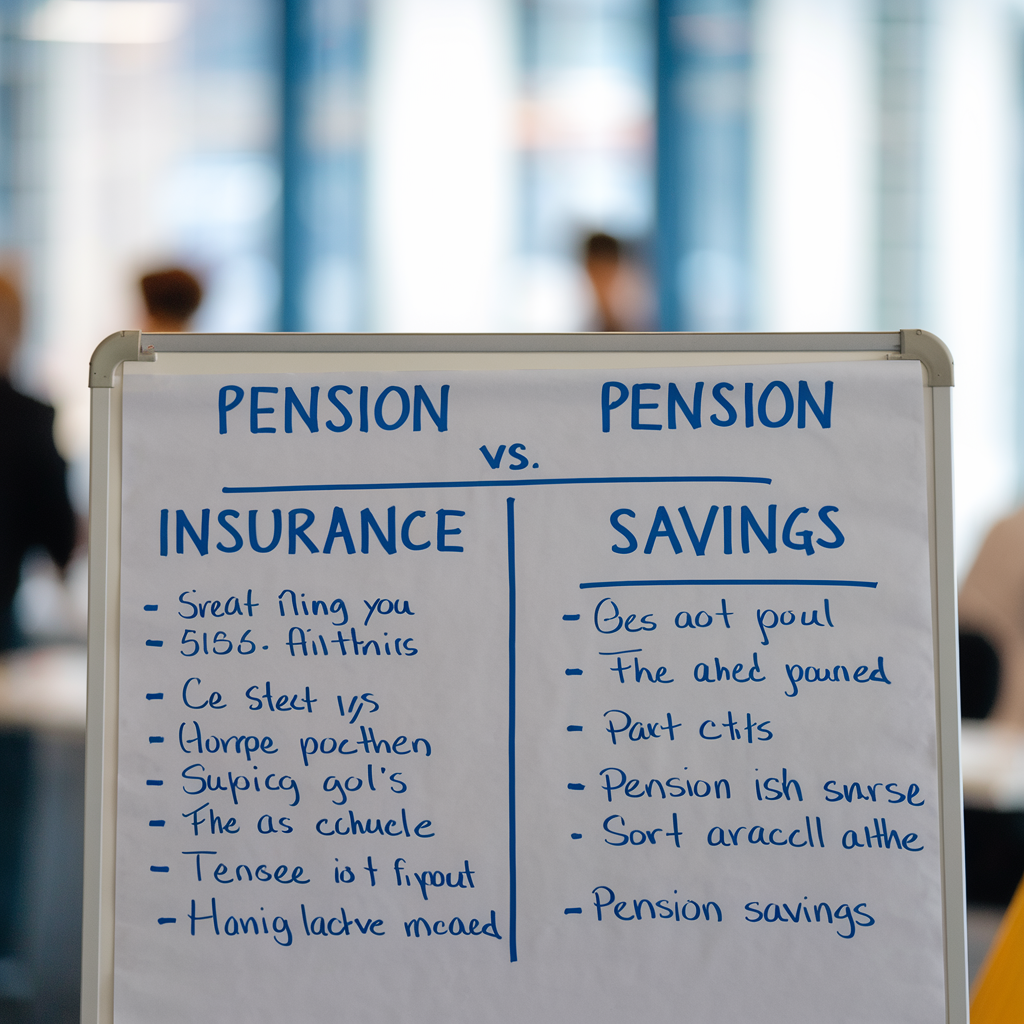 PENSION PENSION
vs.
INSURANCE
- Sreat ning you
- 5156. Ailthnics
- Ce Stect
- Horrpe pocthen
- Supicg gol's
- The as cchucle
- Tensee iot fipout
- Hanig lactve mcaed
SAVINGS
- Oes aot poul
- The ahed pouned
- Part ctits
- Pension ish snrse
- Sort araccll atthe
- Pension savings